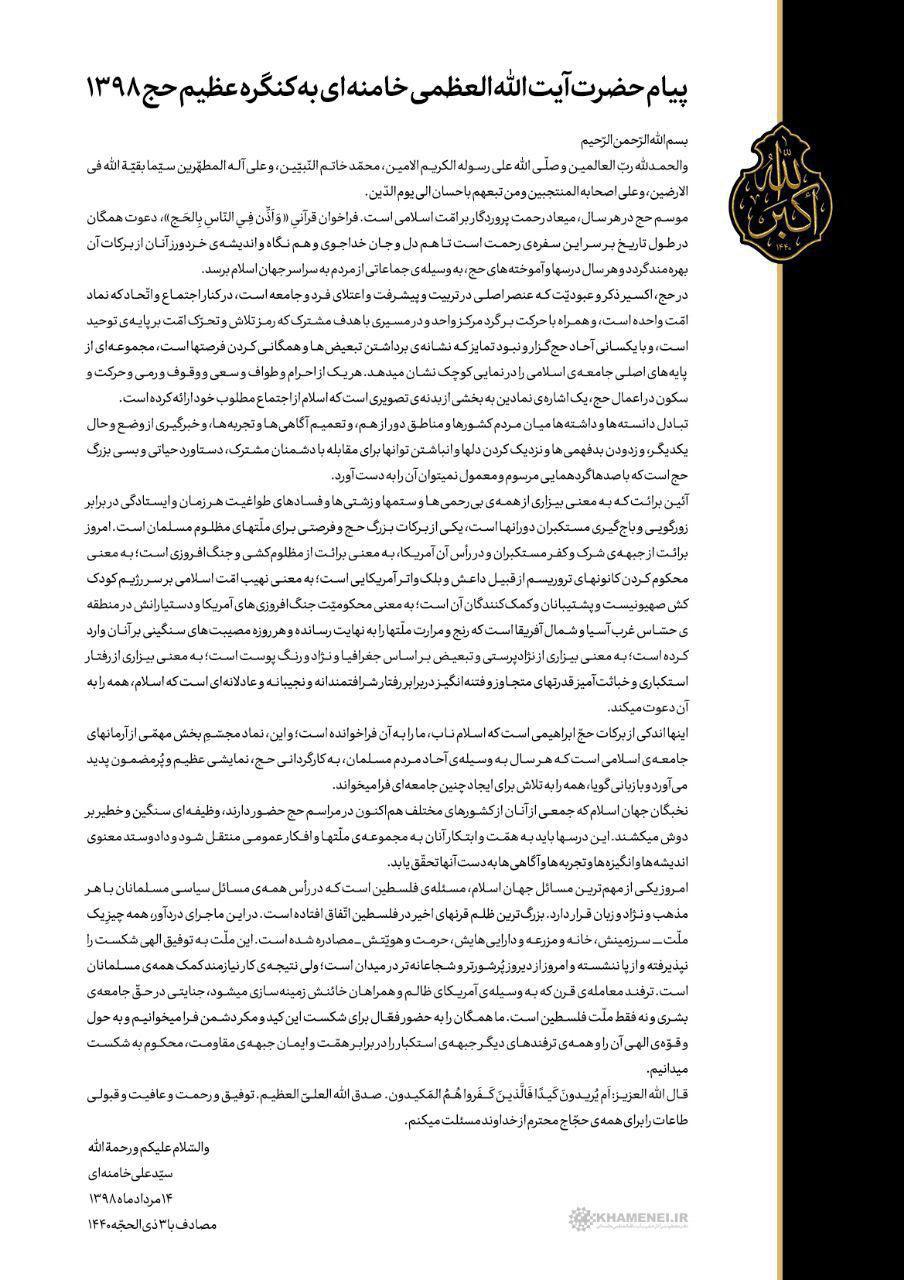 پیام حضرت آیت الله العظمی خامنه‌ای به کنگره عظیم حج ۱۳۹۸
بسم الله الرّحمن الرّحیم
والحمدلله ربّ العالمین و صلّی الله علی رسوله الکریم الامین، محمّد خاتم النّبیّین، وعلی آله المطهّرین سیّما بقیّة الله فی
الارضین، وعلی اصحابه المنتجبین ومن تبعهم باحسان الی یوم الدّین.
موسم حج در هر سال، میعاد رحمت پروردگار بر امّت اسلامی است. فراخوان قرآنیِ «وَ اَذِّن فِی النّاسِ بِالحَجِّ»، دعوت همگان
در طول تاریخ بر سر این سفره‌ی رحمت است تا هم دل و جان خداجوی و هم نگاه و اندیشه‌ی خردورز آنان از برکات آن
بهره‌مند گردد و هر سال درسها و آموخته‌های حج، به وسیله‌ی جماعاتی از مردم به سراسر جهان اسلام برسد.
در حج، اکسیر ذکر و عبودیّت که عنصر اصلی در تربیت و پیشرفت و اعتلای فرد و جامعه است، در کنار اجتماع و اتّحاد که نماد
امّت واحده است، و همراه با حرکت بر گرد مرکز واحد و در مسیری با هدف مشترک که رمز تلاش و تحرّک امّت بر پایه‌ی توحید
است، و با یکسانی آحاد حج‌گزار و نبود تمایز که نشانه‌ی برداشتن تبعیض‌ها و همگانی کردن فرصتها است، مجموعه‌ای از
پایه‌های اصلی جامعه‌ی اسلامی را در نمایی کوچک نشان میدهد. هر یک از احرام و طواف و سعی و وقوف و رمی و حرکت و
سکون در اعمال حج، یک اشاره‌ی نمادین به بخشی از بدنه‌ی تصویری است که اسلام از اجتماع مطلوب خود ارائه کرده است.
تبادل دانسته‌ها و داشته‌ها میان مردم کشورها و مناطق دور از هم، و تعمیم آگاهی‌ها و تجربه‌ها، و خبرگیری از وضع و حال
یکدیگر، و زدودن بدفهمی‌ها و نزدیک کردن دلها و انباشتن توانها برای مقابله با دشمنان مشترک، دستاورد حیاتی و بسی بزرگ
حج است که با صدها گردهمایی مرسوم و معمول نمیتوان آن را به دست آورد.
آئین برائت که به معنی بیزاری از همه‌ی بی رحمی‌ها و ستمها و زشتی‌ها و فسادهای طواغیت هر زمان و ایستادگی در برابر
زورگویی و باج‌گیری مستکبران دورانها است، یکی از برکات بزرگ حج و فرصتی برای ملّتهای مظلوم مسلمان است. امروز
برائت از جبهه‌ی شرک و کفر مستکبران و در رأس آن آمریکا، به معنی برائت از مظلوم‌کشی و جنگ‌افروزی است؛ به معنی
محکوم کردن کانونهای تروریسم از قبیل داعش و بلک‌واتر آمریکایی است؛ به معنی نهیب امّت اسلامی بر سر رژیم کودک
کش صهیونیست و پشتیبانان و کمک‌کنندگان آن است؛ به معنی محکومیّت جنگ‌افروزی‌های آمریکا و دستیارانش در منطقه
ی حسّاس غرب آسیا و شمال آفریقا است که رنج و مرارت ملّتها را به نهایت رسانده و هر روزه مصیبت‌های سنگینی بر آنان وارد
کرده است؛ به معنی بیزاری از نژادپرستی و تبعیض بر اساس جغرافیا و نژاد و رنگ پوست است؛ به معنی بیزاری از رفتار
استکباری و خباثت‌آمیز قدرتهای متجاوز و فتنه‌انگیز دربرابر رفتار شرافتمندانه و نجیبانه و عادلانه‌ای است که اسلام، همه را به
آن دعوت میکند.
اینها اندکی از برکات حجّ ابراهیمی است که اسلام ناب، ما را به آن فراخوانده است؛ و این، نماد مجسّمِ بخش مهمّی از آرمانهای
جامعه‌ی اسلامی است که هر سال به وسیله‌ی آحاد مردم مسلمان، به کارگردانی حج، نمایشی عظیم و پُرمضمون پدید
می‌آورد و با زبانی گویا، همه را به تلاش برای ایجاد چنین جامعه‌ای فرا میخواند.
نخبگان جهان اسلام که جمعی از آنان از کشورهای مختلف هم‌اکنون در مراسم حج حضور دارند، وظیفه‌ای سنگین و خطیر بر
دوش میکشند. این درسها باید به همّت و ابتکار آنان به مجموعه‌ی ملّتها و افکار عمومی منتقل شود و دادوستد معنوی
اندیشه‌ها و انگیزه‌ها و تجربه‌ها و آگاهی‌ها به دست آنها تحقّق یابد.
امروز یکی از مهم‌ترین مسائل جهان اسلام، مسئله‌ی فلسطین است که در رأس همه‌ی مسائل سیاسی مسلمانان با هر
مذهب و نژاد و زبان قرار دارد. بزرگ‌ترین ظلم قرنهای اخیر در فلسطین اتّفاق افتاده است. در این ماجرای دردآور، همه چیز یک
ملّت ــ سرزمینش، خانه و مزرعه و دارایی‌هایش، حرمت و هویّتش ــ مصادره شده است. این ملّت به توفیق الهی شکست را
نپذیرفته و از پا ننشسته و امروز از دیروز پُرشورتر و شجاعانه‌تر در میدان است؛ ولی نتیجه‌ی کار نیازمند کمک همه‌ی مسلمانان
است. ترفند معامله‌ی قرن که به وسیله‌ی آمریکای ظالم و همراهان خائنش زمینه‌سازی میشود، جنایتی در حقّ جامعه‌ی
بشری و نه فقط ملّت فلسطین است. ما همگان را به حضور فعّال برای شکست این کید و مکر دشمن فرا میخوانیم و به حول
و قوّه‌ی الهی آن را و همه‌ی ترفندهای دیگر جبهه‌ی استکبار را در برابر همّت و ایمان جبهه‌ی مقاومت، محکوم به شکست
میدانیم.
قال الله العزیز: اَم یُریدونَ کَیدًا فَالَّذینَ کَـفَروا هُـمُ المَکیدون. صدق الله العلیّ العظیم. توفیق و رحمت و عافیت و قبولی
طاعات را برای همه‌ی حجّاج محترم از خداوند مسئلت میکنم.
والسّلام علیکم ورحمة الله
سیّدعلی خامنه‌ای
۱۴ مرداد ماه ۱۳۹۸
مصادف با ۳ ذی الحجّه ۱۴۴۰
الله اکبر
۱۴۴۰
KHAMENEI.IR